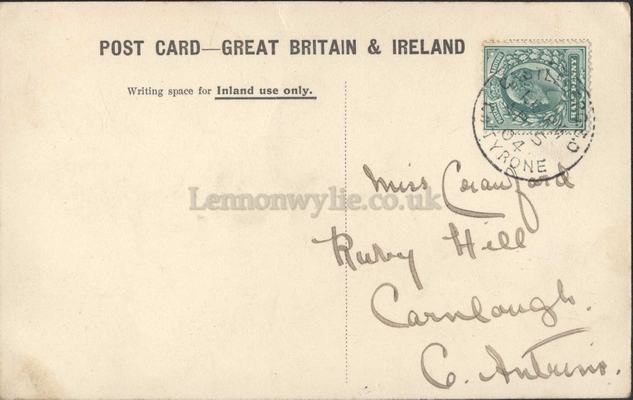 POST CARD—GREAT BRITAIN & IRELAND
Writing space for Inland use only.
Lennonwylie.co.uk
04
TYRONE
Miss Crawford
Ruby Hill
Carnlough.
C. Antrim.